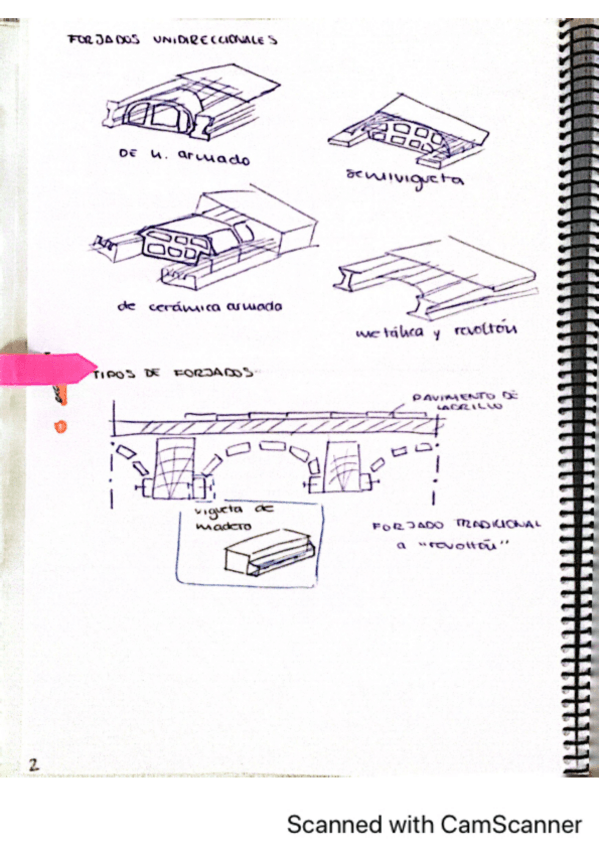 FORJADOS UNIDIRECCIONALES
DE H. armado
semivigueta
de cerámica armado
metálica y revoltón
TIPOS DE FORJADOS
PAVIMENTO DE
LADRILLO
vigueta de
madera
FORJADO TRADICIONAL
a "revoltón"
2
Scanned with CamScanner